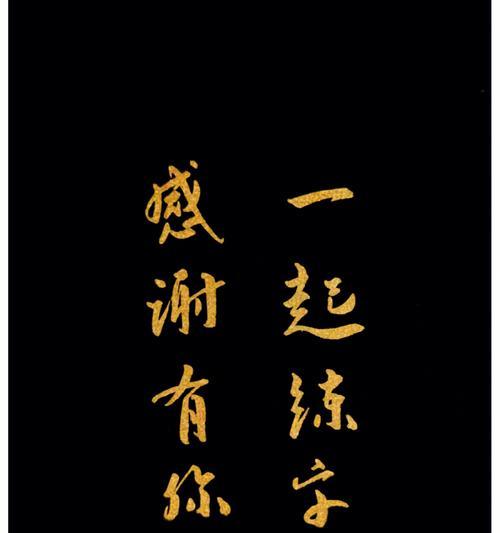 一起练字
感谢有你